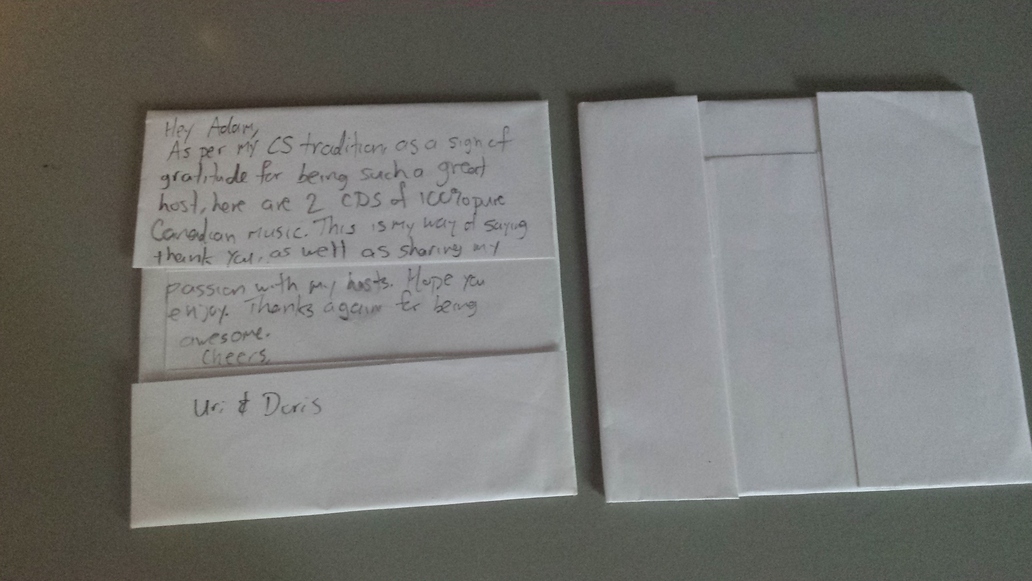 Hey Adam,
As per my CS tradition, as a sign of
gratitude for being such a great
host, here are 2 CDS of 100% pure
Canadian Music. This is my way of saying
thank you, as well as sharing my
passion with my hosts. Hope you
enjoy. Thanks again for being
awesome.
Cheers,
Uri & Doris